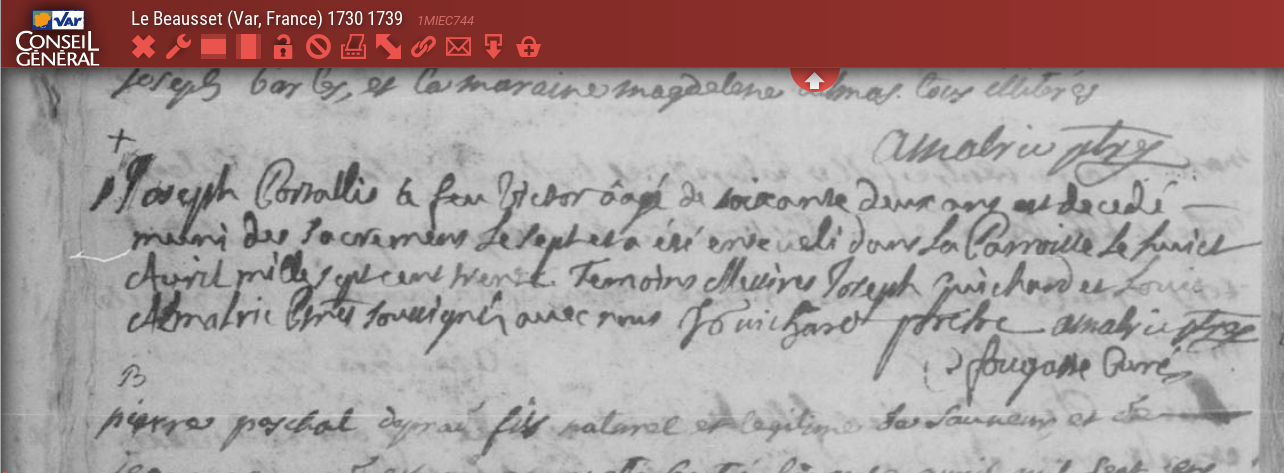 VAR
CONSEIL
GÉNÉRAL
Le Beausset (Var, France) 1730 1739 1MIEC744
Joseph barles, et la maraine magdelene tous illiterés
+
amalric ptre
Joseph Portallis à feu Victor âagé de soixante deux ans est decedé
muni des Sacremens Le sept et a été enseveli dans La Parroisse Le huict
Avril mille sept cent trente Temoins Messires Joseph Guichard et Louis
Amalric Ptres soussignés avec nous J Guichard prêtre amalric ptre
fougasse Curé
B
pierre paschal fils naturel et legitime de Sauveur et de